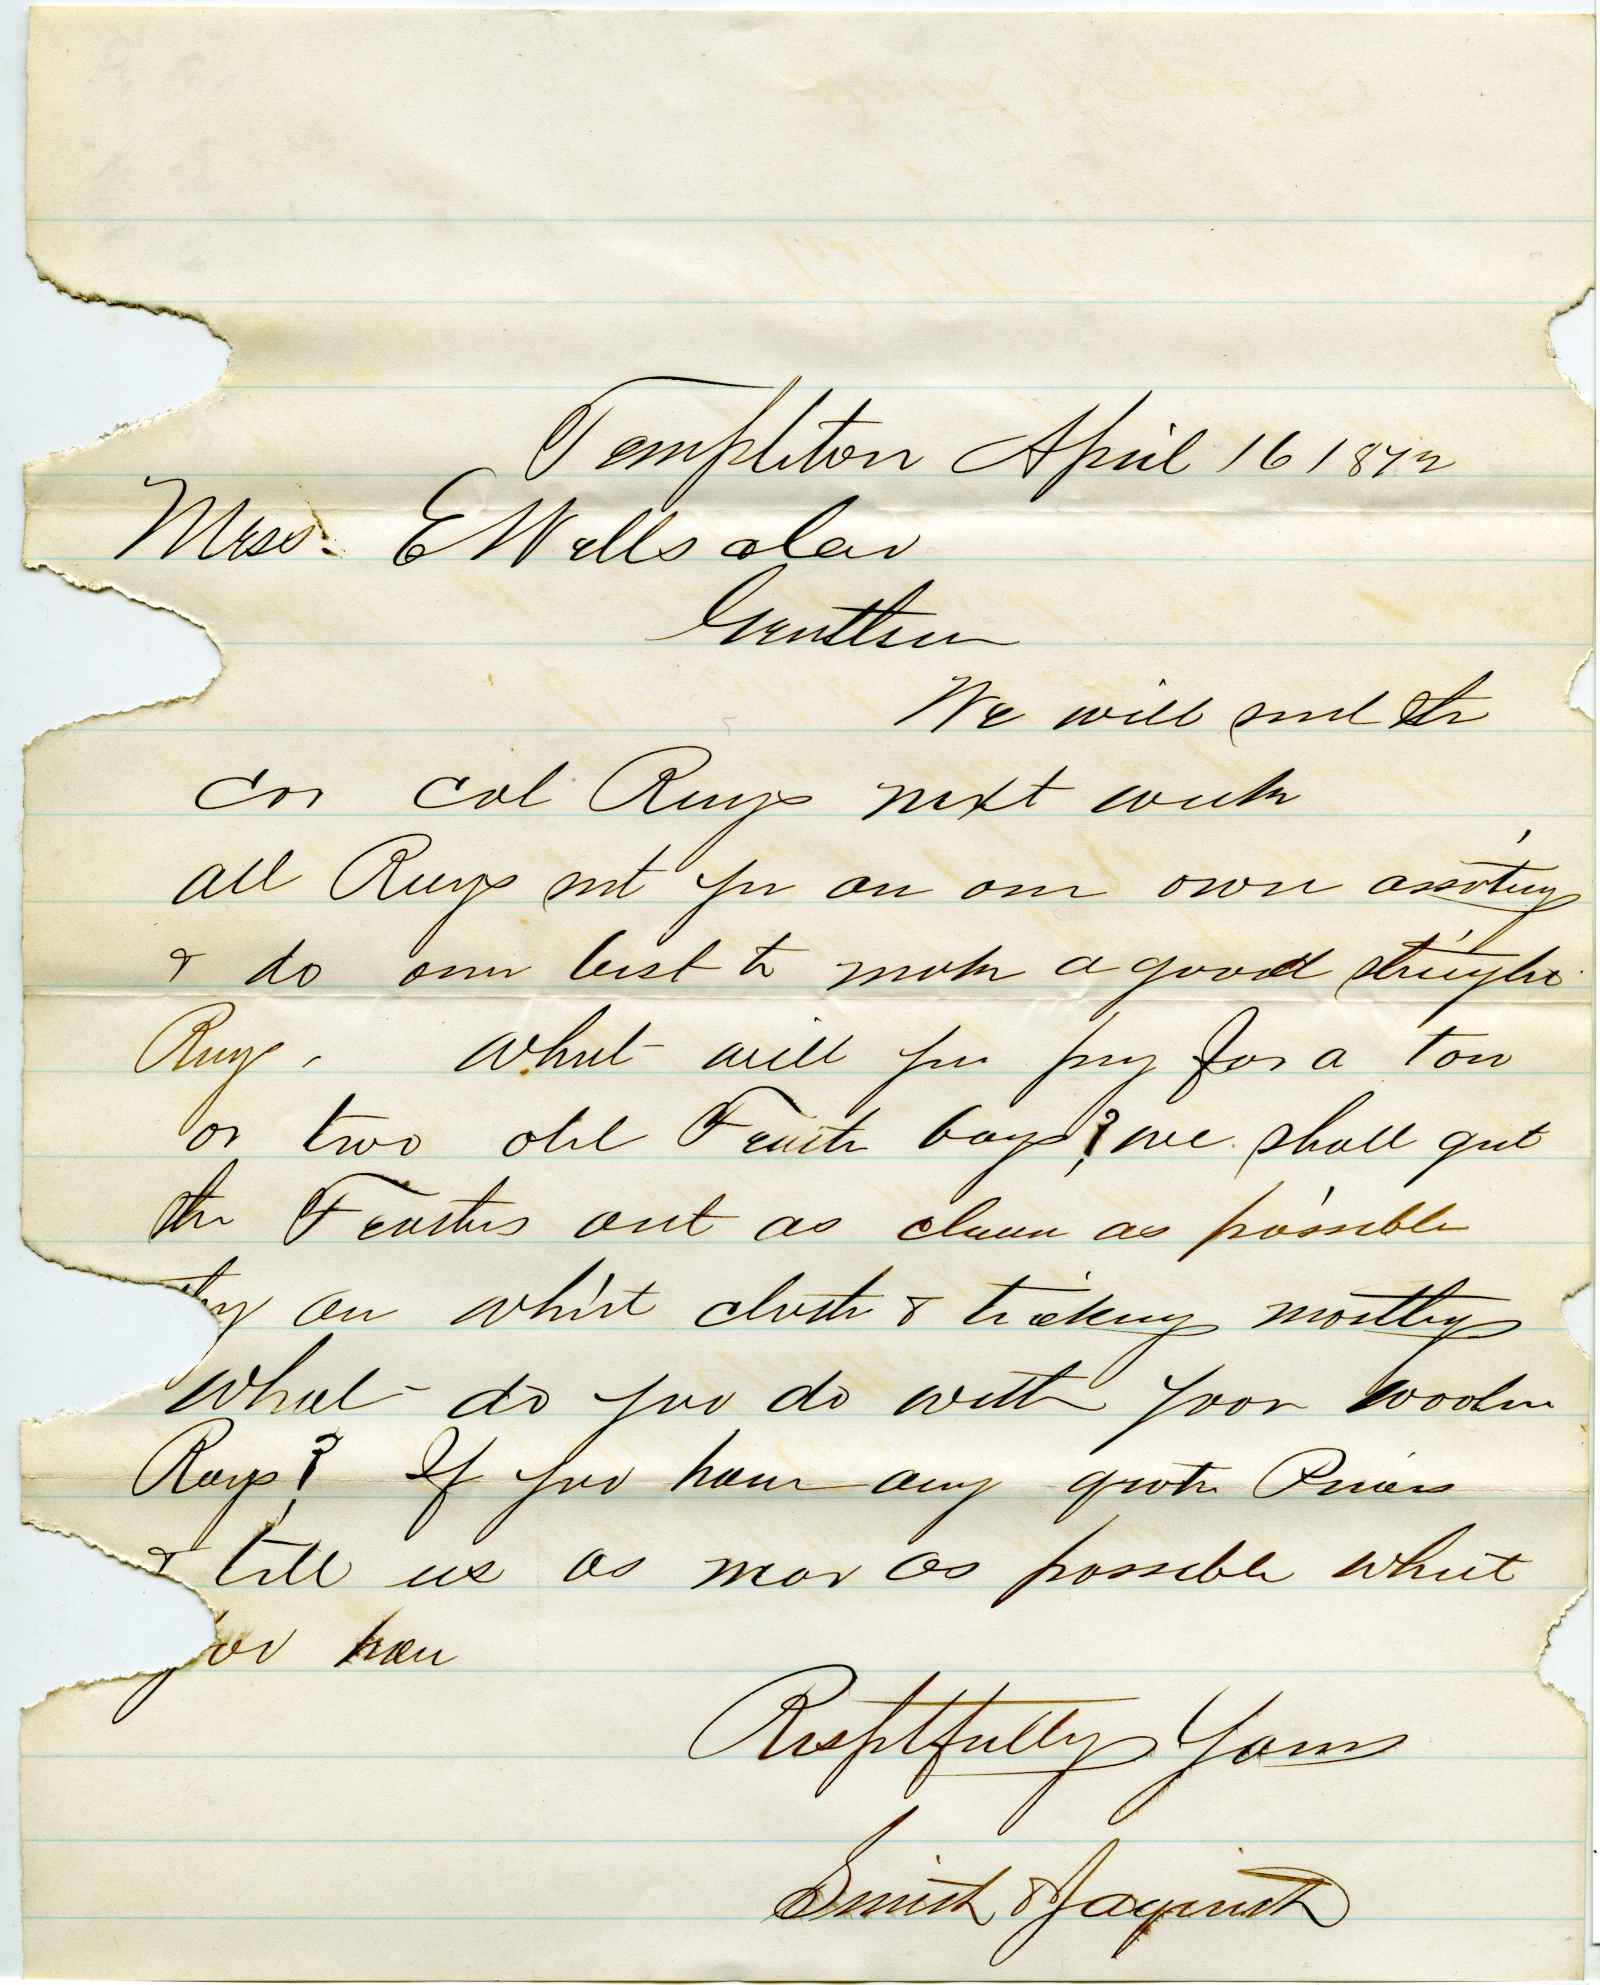 Templeton April 16 1872
Mess. E Wells
Gentlem
We will send the
Col Rags next week
all Rags sent you are our own assorting
& do our best to make a good straight
Rags. What will you pay for a ton
or two old Feather bags? we shall get
the Feathers out as clean as possible
they are whit cloth & ticking mostly
What do you do with your woolen
Rags? If you have any quote Prices
& tell us as near as possible what
you hav
Resptfully Yours
Smith & Jaquith